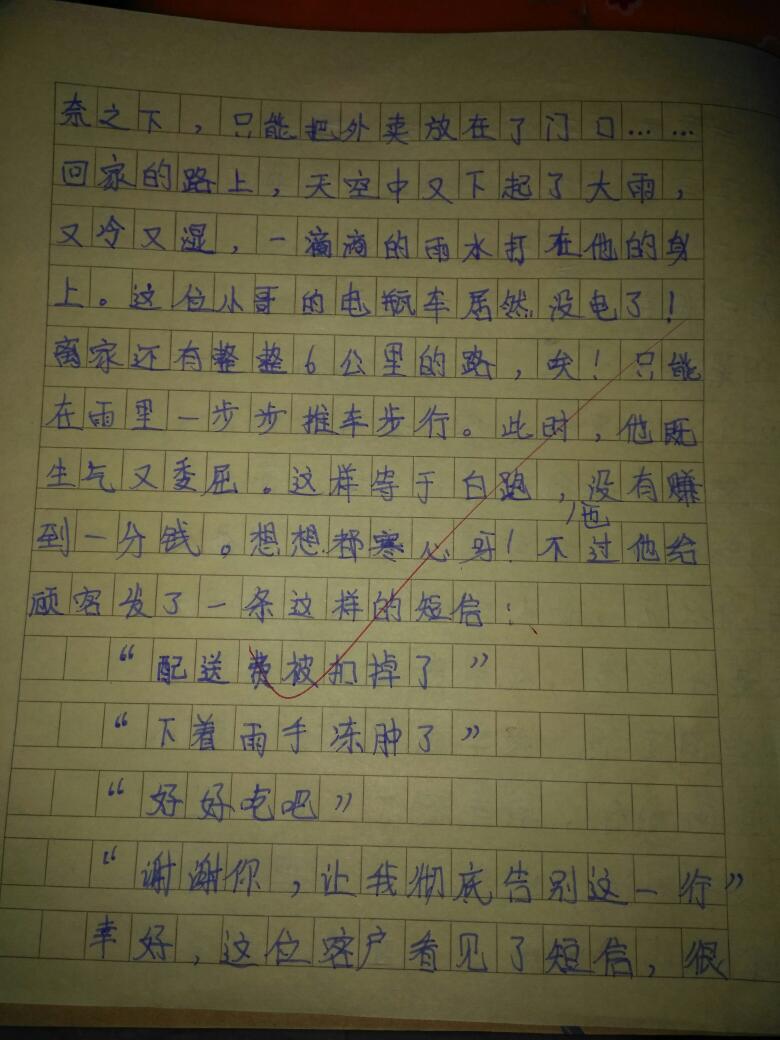 奈之下，只能把外卖放在了门口……
回家的路上，天空中又下起了大雨，
又冷又湿，一滴滴的雨水打在他的身
上。这位小哥的电瓶车居然没电了！
离家还有整整6公里的路，唉！只能
在雨里一步步推车步行。此时，他既
生气又委屈。这样等于白跑，没有赚
到一分钱。想想都寒心呀！不过他给
他
顾客发了一条这样的短信：
“配送费被扣掉了”
“下着雨手冻肿了”
“好好吃吧”
“谢谢你，让我彻底告别这一行”
幸好，这位客户看见了短信，很